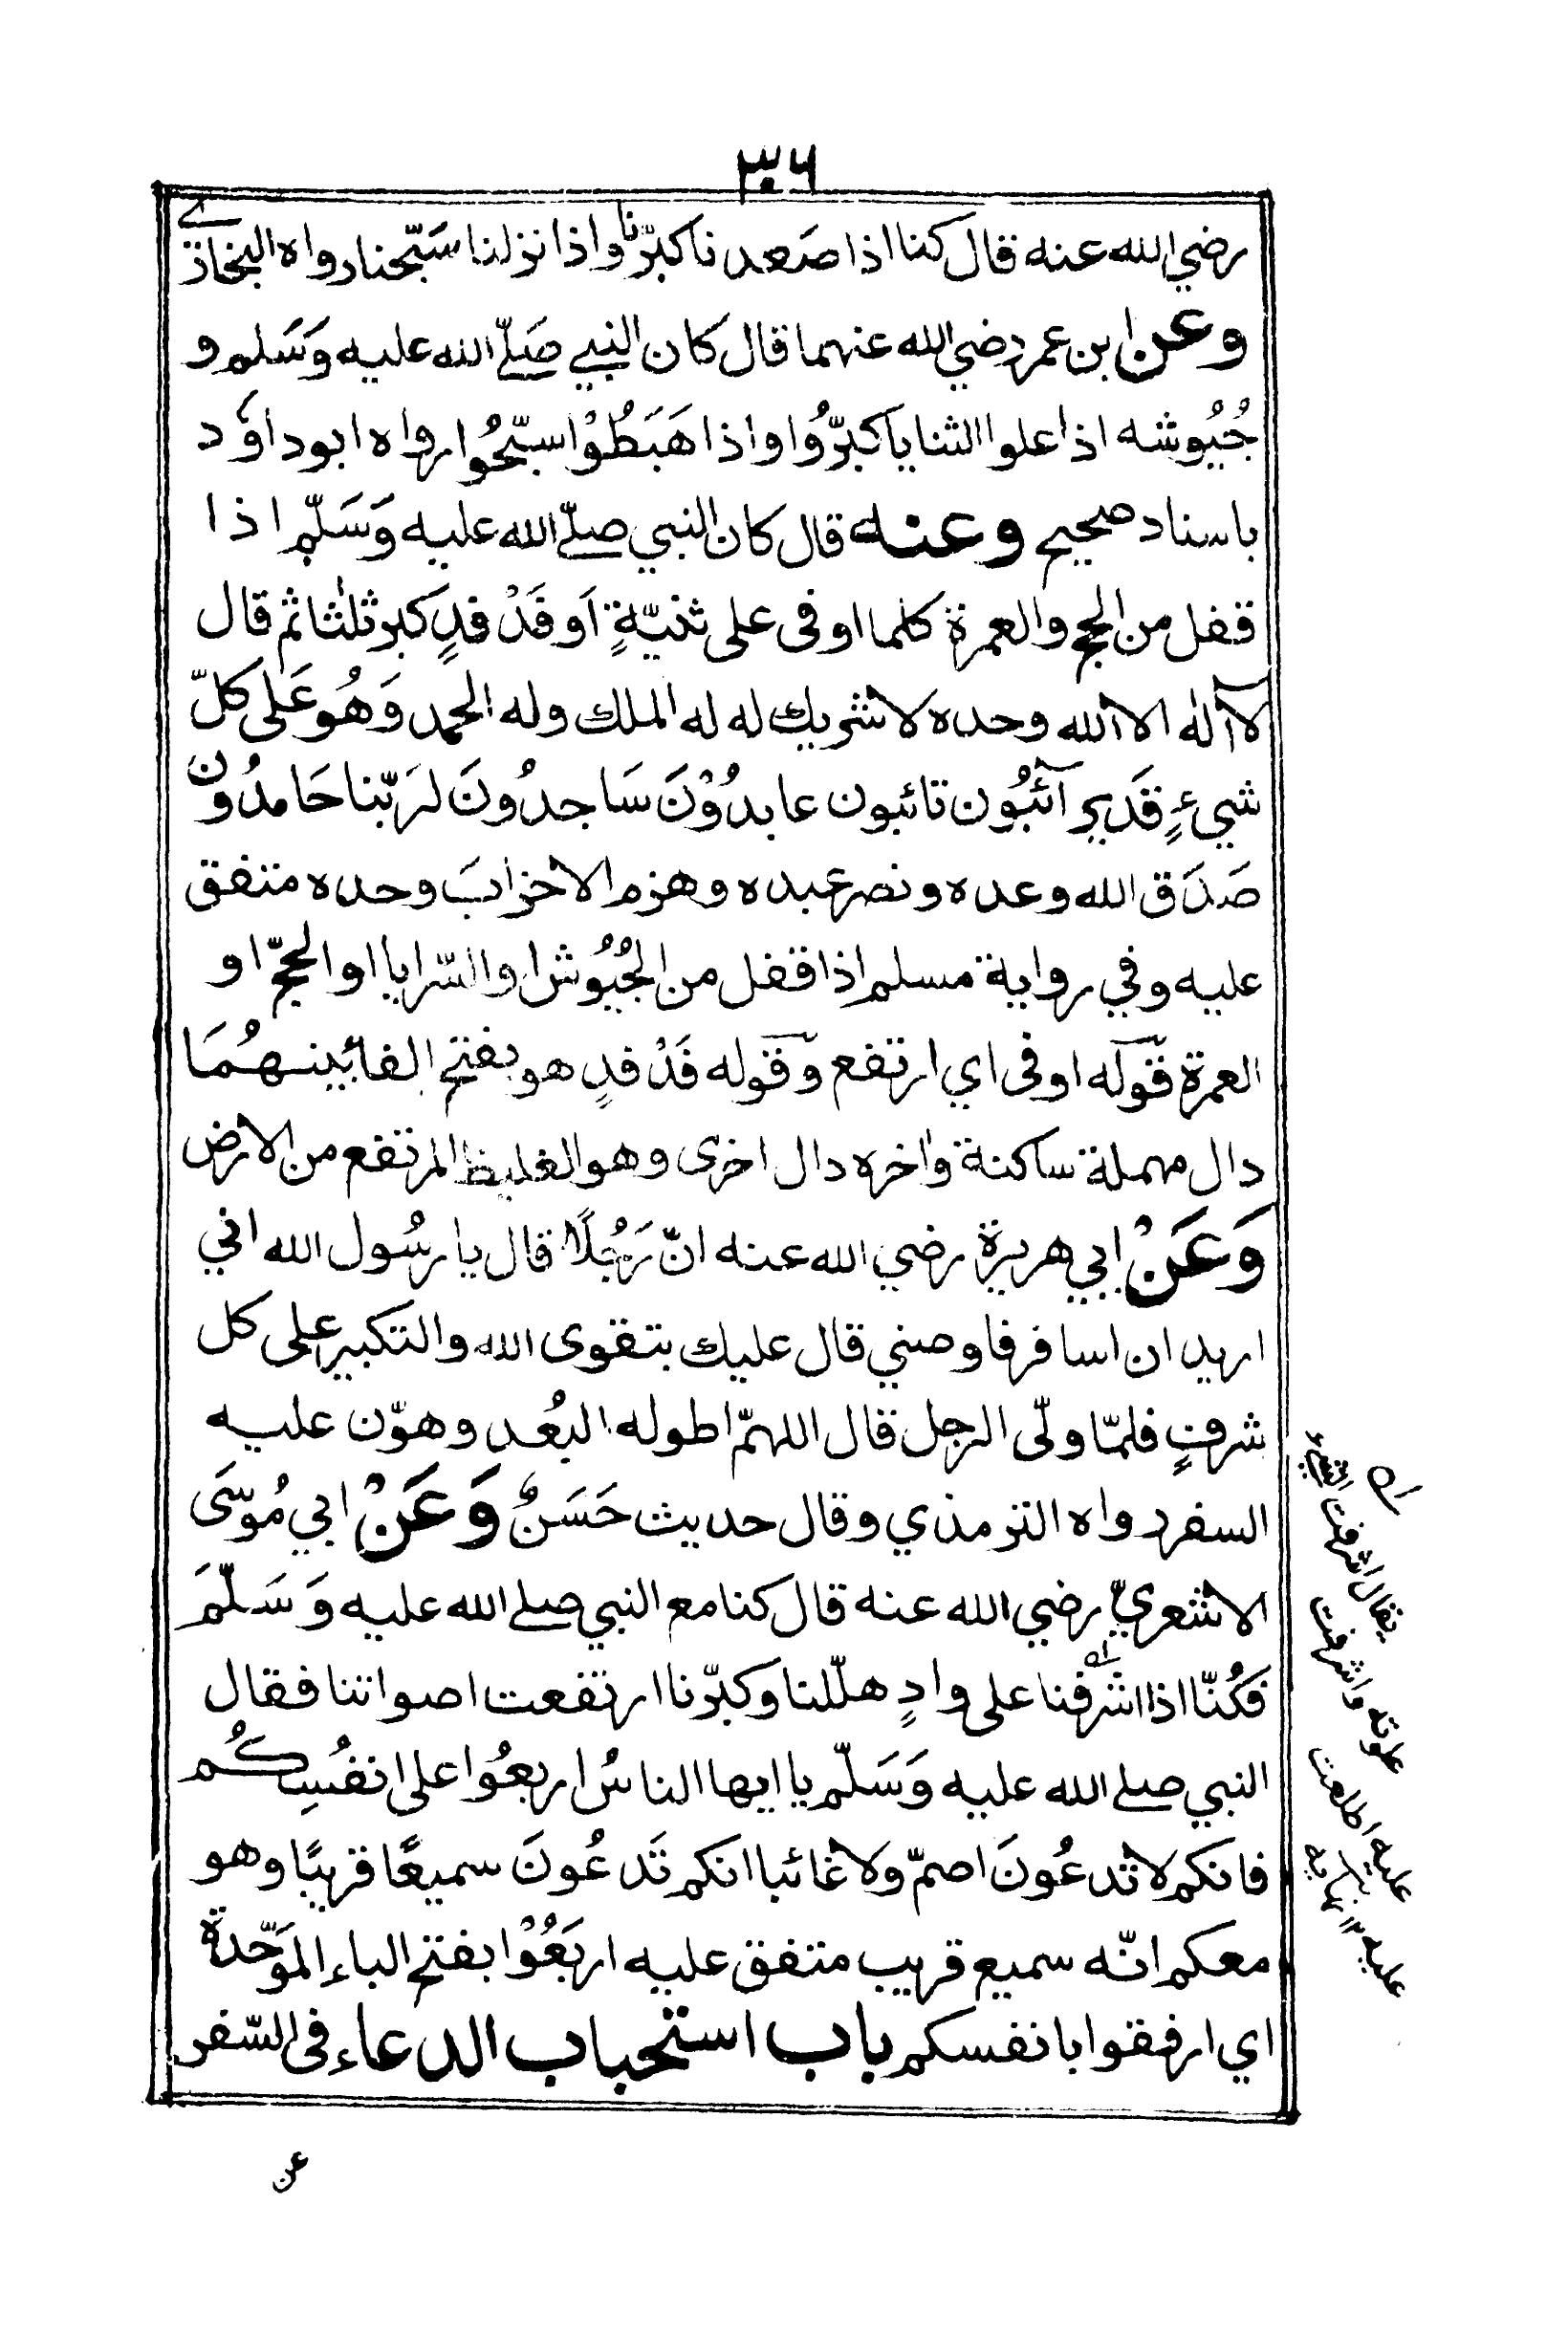 ٣٠٦
رضي الله عنه قال كنا اذا صَعدنا كبرّنا واذا نزلنا سَبّحنا رواه البخاري
وعن ابن عمر رضي الله عنهما قال كان النبي صَلّے الله عليه وَسَلم و
جُيُوشه اذا علوا الثنايا كبرّوُا واذا هَبَطُوْا سبّحُوا رواه ابوداوٗد
باسناد صحيح وعنه قال كان النبي صلّے الله عليه وَسَلّم اذا
قفل من الحج والعمرة كلما اوفى على ثنيّةٍ اَو فَدْ فدٍ كبر ثلٰثا ثم قال
لآاله الا الله وحده لا شريك له له الملك وله الحمد وَهُو عَلى كلّ
شيءٍ قَدير آئبُون تائبون عابدُوْنَ سَاجدُونَ لرَبّنا حَامدُون
صَدَق الله وعده ونصر عبده وهزم الاحزابَ وحده متفق
عليه وفي رواية مسلم اذا قفل من الجُيُوش او السّرايا او الحجّ او
العمرة قوله اوفى اي ارتفع وقوله فَدْ فدٍ هو بفتح الفائين بينهُمَا
دال مهملة ساكنة واٰخره دال اخرى وهو الغليظ المرتفع من الارض
وَعَنْ ابي هريرة رضي الله عنه انّ رَجُلًا قال يا رسُول الله اني
اريد ان اسافر فاوصني قال عليك بتقوى الله والتكبير على كل
شرفٍ فلمّا ولّى الرجل قال اللهمّ اطو له البُعد وهوّن عليه
السفر رواه الترمذي وقال حديث حَسَنٌ وَعَنْ ابي مُوسَى
الاشعريّ رضي الله عنه قال كنا مع النبي صلے الله عليه وَسَلّمَ
فَكُنّا اذا اشرفنا على وادٍ هلّلنا وكبرّنا ارتفعت اصواتنا فقال
النبي صلے الله عليه وَسَلّم يا ايها الناسُ اربعُوا على انفُسِكُم
فانكم لا تدعُونَ اصمّ ولا غائبا انكم تَدعُونَ سميعًا قريبًا وهو
معكم انّه سميع قريب متفق عليه اربَعُوْا بفتح الباء الموَحّدة
اي ارفقوا بانفسكم باب استحباب الدعاء في السّفر
يقال اشرفت الشيء
علوته واشرفت
عليه اطلعت
عليه ١٢ نهايه
عن